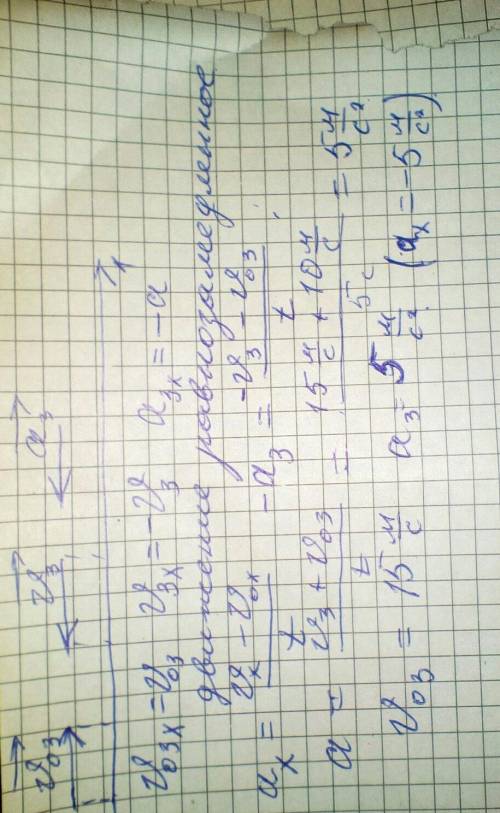 v⃗₀₃ v⃗₃ a⃗₃
x
v₀₃ₓ = v₀₃ v₃ₓ = -v₃ a₃ₓ = -a
движение равнозамедленное
aₓ = (vₓ - v₀ₓ)/t -a₃ = (-v₃ - v₀₃)/t
a = (v₃ + v₀₃)/t = (15 м/с + 10 м/с)/(5 с) = 5 м/с²
v₀₃ = 15 м/с a₃ = 5 м/с² (aₓ = -5 м/с²)